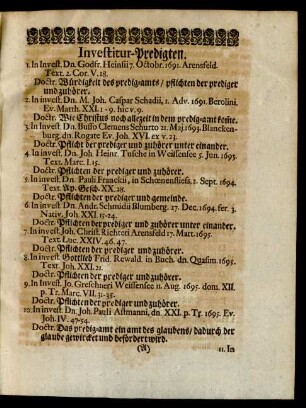 Investitur-Predigten.
1. In Invest. Dn. Godfr. Heinsii 7. Octobr. 1691. Arensfeld.
Text. 2. Cor. V. 18.
Doctr. Würdigkeit des predig-amts / pflichten der prediger
und zuhörer.
2. In Invest. Dn. M. Joh. Caspar Schadii, 1. Adv. 1691. Berolini.
Ev. Matth. XXI. 1-9. hic v. 9.
Doctr. Wie Christus noch allezeit in dem predigamt komme.
3. In Invest. Dn. Busso Clemens Schurtz 21. Maj. 1693. Blanckenburg.
dn. Rogate Ev. Joh. XVI. ex v. 23.
Doctr. Pflicht der prediger und zuhörer unter einander.
4. In Invest. Dn. Joh. Heinr Tusche in Weissensee 5. Jun. 1693.
Text. Marc. I. 15.
Doctr. Pflichten der prediger und zuhörer.
5. In Invest. Dn. Pauli Franckii, in Schœnensfliess, 2. Sept. 1694.
Text. Ap. Gesch. XX. 28.
Doctr. Pflichten der prediger und gemeinde.
6. In Invest. Dn. Andr. Schmidii Blumberg. 27. Dec. 1694. fer. 3.
Nativ. Joh XXI. 15-24.
Doctr. Pflichten der prediger und zuhörer unter einander.
7. In Invest. Joh. Christ. Richteri Arensfeld 17. Mart. 1695.
Text. Luc. XXIV. 46. 47.
Doctr. Pflicht der prediger und zuhörer.
8. In Invest. Gottlieb Frid. Rewald. in Buch. dn. Qvasim 1695.
Text. Joh. XXI. 21.
Doctr. Pflichten der prediger und zuhörer.
9. In Invest. Jo. Greschneri Weissensee 11. Aug. 1695. dom. XII.
p. Tr. Marc. VII. 31-35.
Doctr. Pflichten der prediger und zuhörer.
10. In Invest. Dn. Joh. Pauli Astmanni, dn. XXI. p. Tr. 1695. Ev.
Joh. IV. 47-54.
Doctr. Das predig-amt ein amt des glaubens / dadurch der
glaube gewircket und befördert wird.
(A) 11. In